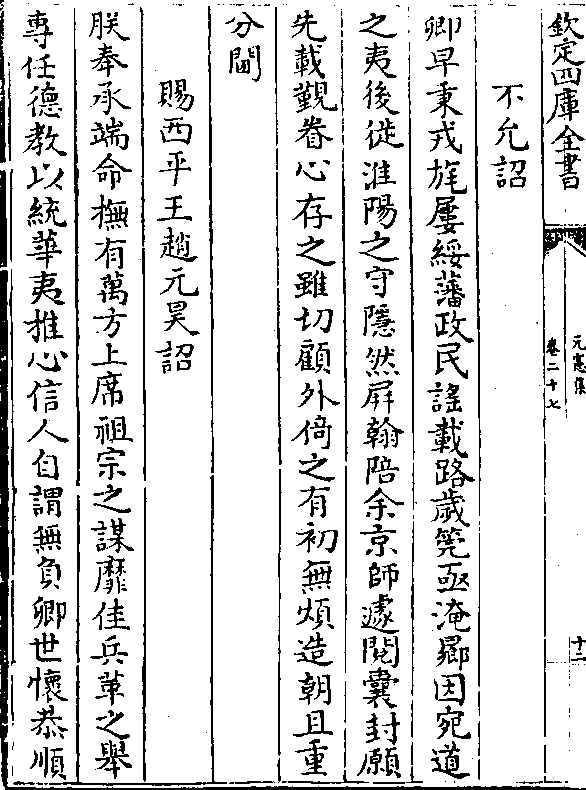 欽定四庫全書
元憲集
卷二十七
十二
不允詔
卿早秉戎旄屢綏藩政民謡載路歲筦亟淹曏因宛道
之夷後徙淮陽之守隱然屏翰陪余京師遽閲囊封願
先載覲眷心存之雖切顧外倚之有初無煩造朝且重
分閫
賜西平王趙元昊詔
朕奉承端命撫有萬方上席祖宗之謀靡佳兵革之舉
専任德教以統華夷推心信人自謂無負卿世懷恭順